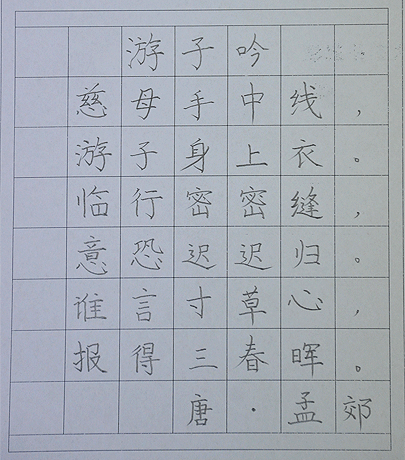 游子吟
慈母手中线，
游子身上衣。
临行密密缝，
意恐迟迟归。
谁言寸草心，
报得三春晖。
唐·孟郊